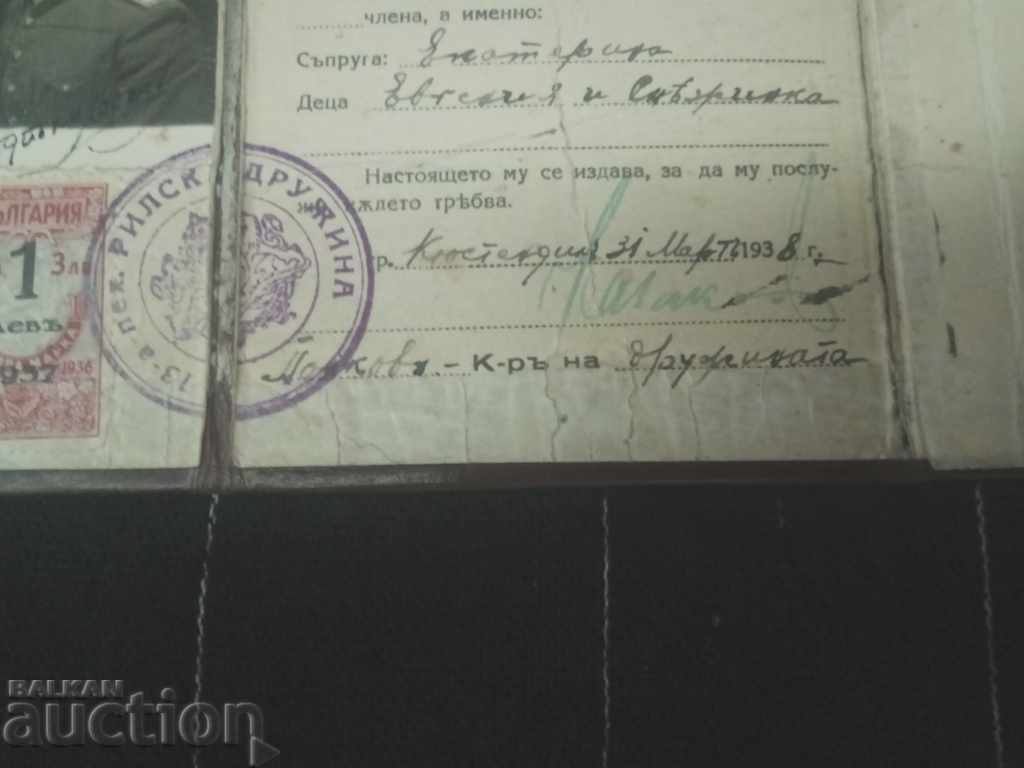 члена, а именно:
Съпруга: Екатерина
Деца Евгения и Снѣжринка
Настоящето му се издава, за да му послу-
жи където трѣбва.
гр. Кюстендил 31 Мартъ 1938 г.
К-ръ на дружината
13-а пех. РИЛСК ДРУЖИНА
БЪЛГАРИЯ
1
3 лв
левъ
1937
1936
BALKAN
auction